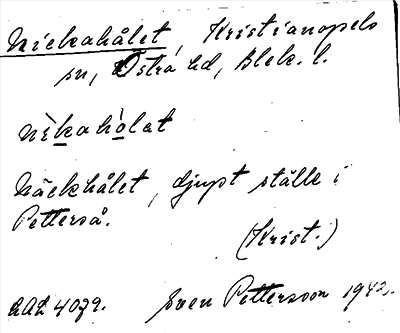 Nickahålet, Kristianopels
sn, Östra hd, Blek. l.
nìkahòlat
Näckhålet, djupt ställe i
Petterså.
(Krist.)
AAL 4079. Sven Pettersson 1942.